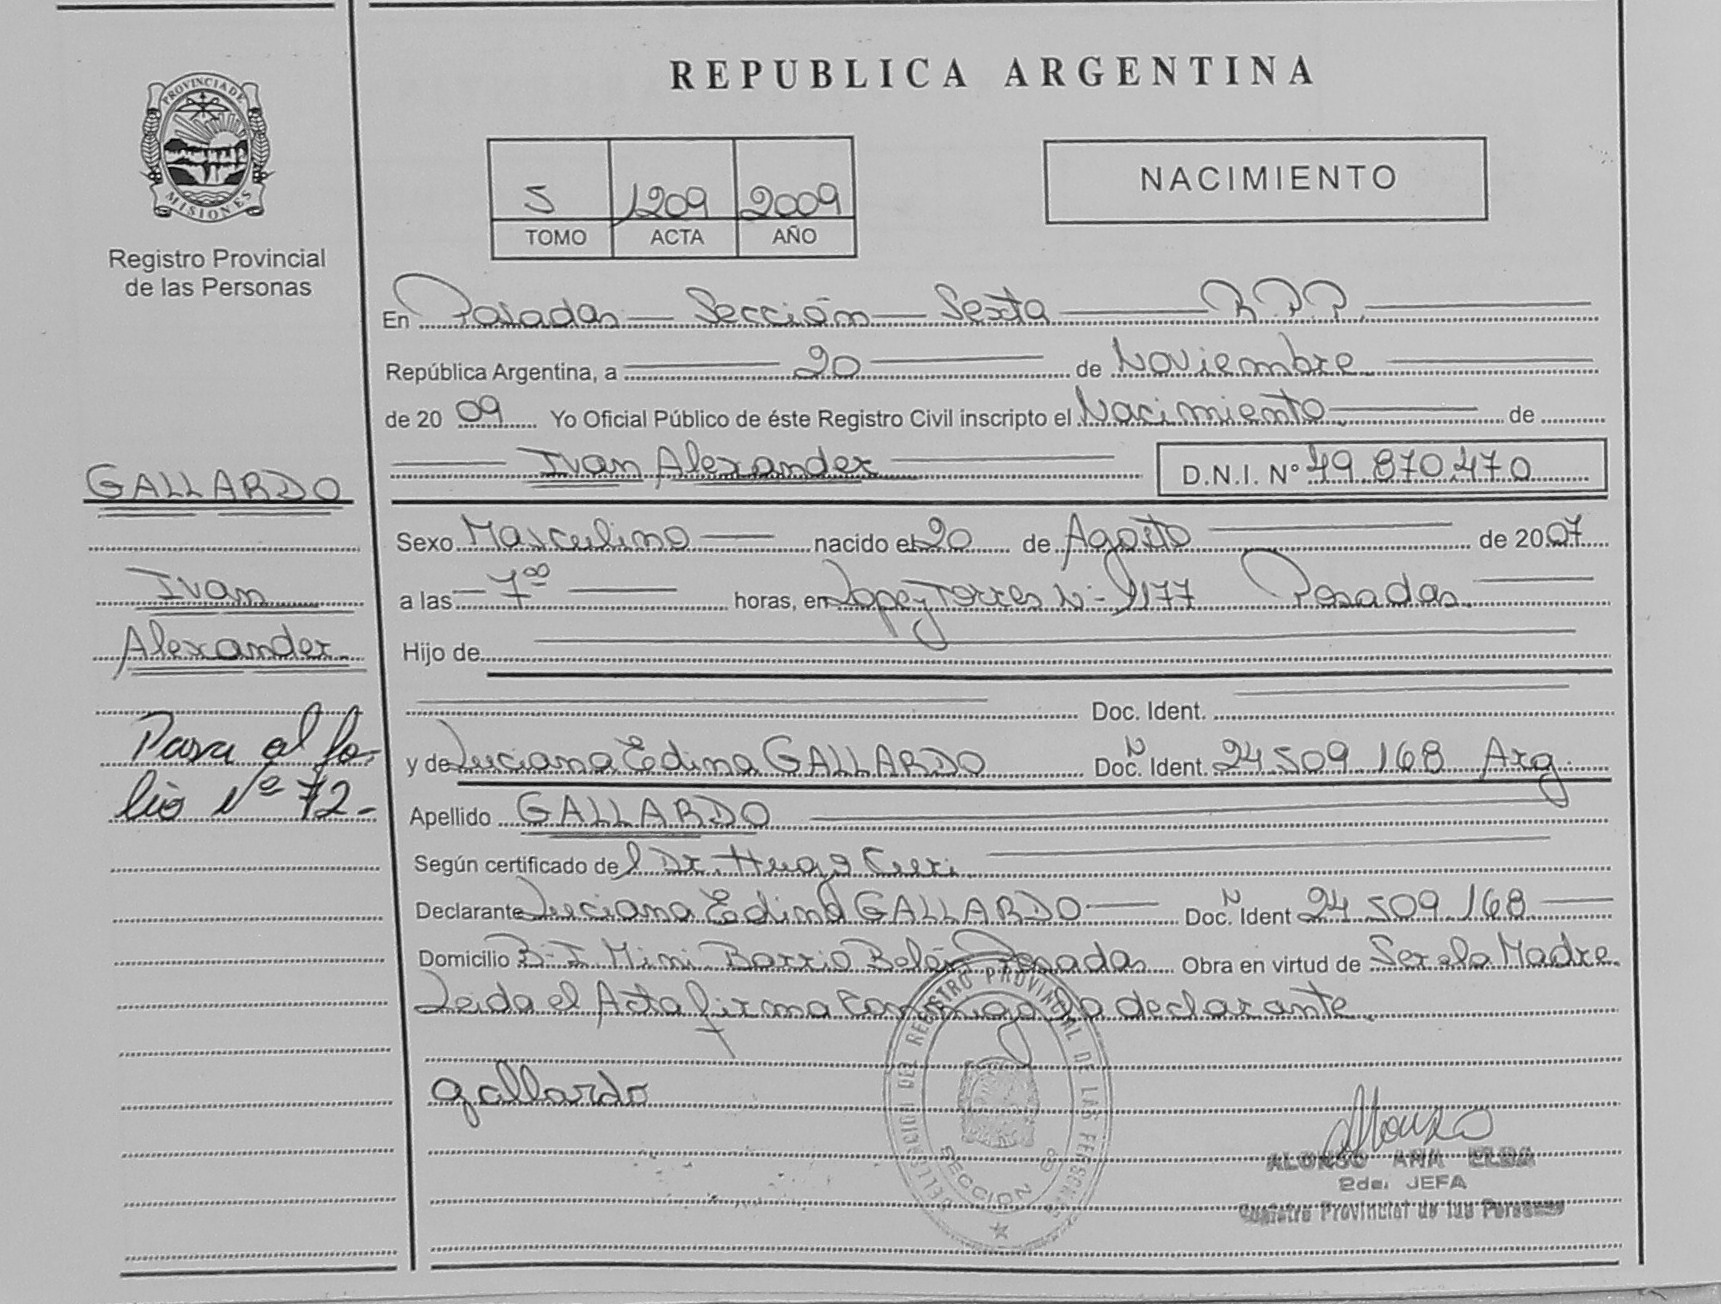 REPUBLICA ARGENTINA
PROVINCIA DE
MISIONES
Registro Provincial
de las Personas
5 1209 2009
TOMO ACTA AÑO
NACIMIENTO
En Posadas Sección Sexta R.P.P.
República Argentina, a 20 de Noviembre
de 2009 Yo Oficial Público de éste Registro Civil inscripto el Nacimiento de
Ivan Alexander D.N.I. Nº 49.870.470
Sexo Masculino nacido el 20 de Agosto de 2007
a las 7⁰⁰ horas, en Lopez Torres Nº 1177 Posadas.
Hijo de
Doc. Ident.
y de Luciana Edina GALLARDO Doc. N Ident. 24.509.168 Arg.
Apellido GALLARDO
Según certificado del Dr. Hugo
Declarante Luciana Edina GALLARDO Doc. N Ident 24.509.168
Domicilio Mini Barrio Belén Posadas Obra en virtud de Ser la Madre.
Leida el Acta firma Conmigo la declarante.
gallardo
GALLARDO
Ivan
Alexander
Pasa al fo-
lio Nº 72-
DELEGACION DEL REGISTRO PROVINCIAL DE LAS PERSONAS
SECCION 6
ALONSO ANA ELBA
2da. JEFA
Registro Provincial de las Personas